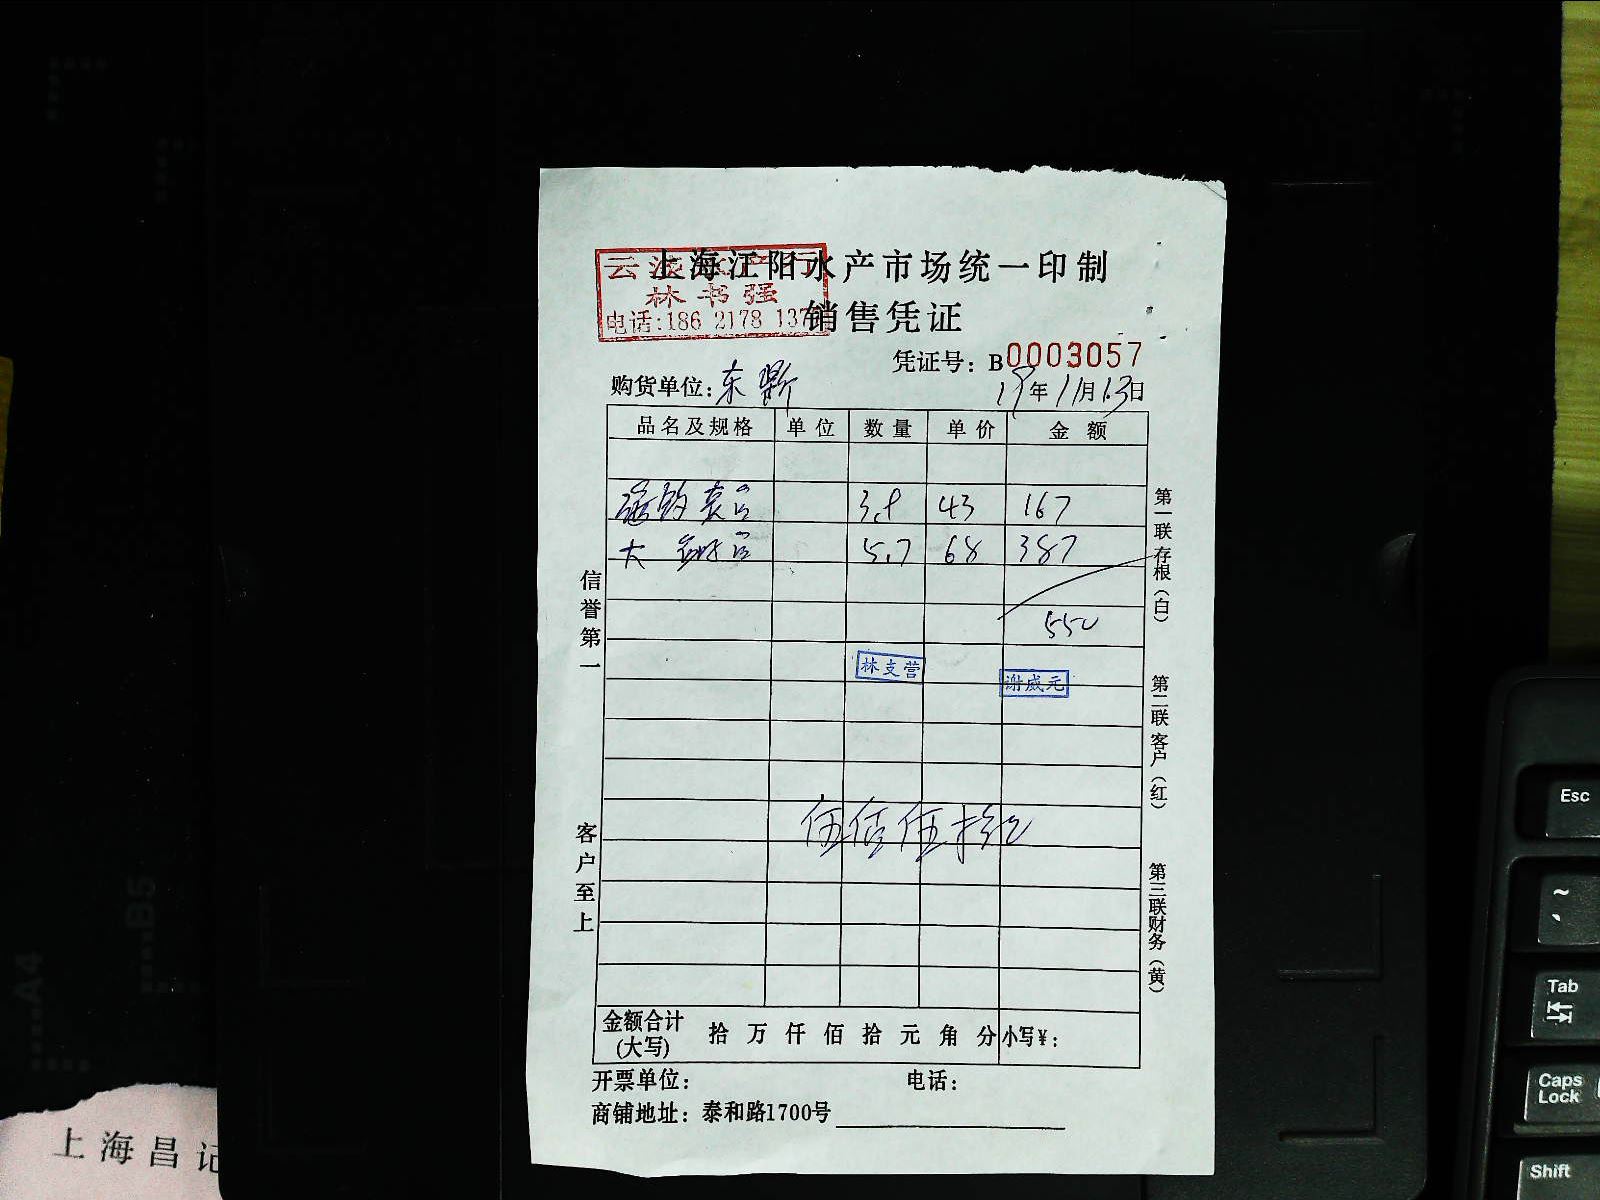 上海江阳水产市场统一印制
林书强
电话:186 2178 137
销售凭证
凭证号: B0003057
购货单位: 东
19年11月13日
品名及规格 单位 数量 单价 金额
3.9 43 167
大 5.7 68 387
550
林支营 谢威元
伍佰伍拾元
金额合计(大写) 拾 万 仟 佰 拾 元 角 分 小写¥:
开票单位: 电话:
商铺地址: 泰和路1700号
信誉第一
客户至上
第一联存根(白)
第二联客户(红)
第三联财务(黄)
上海昌记
A4
B5
Esc
~
Tab
Caps Lock
Shift